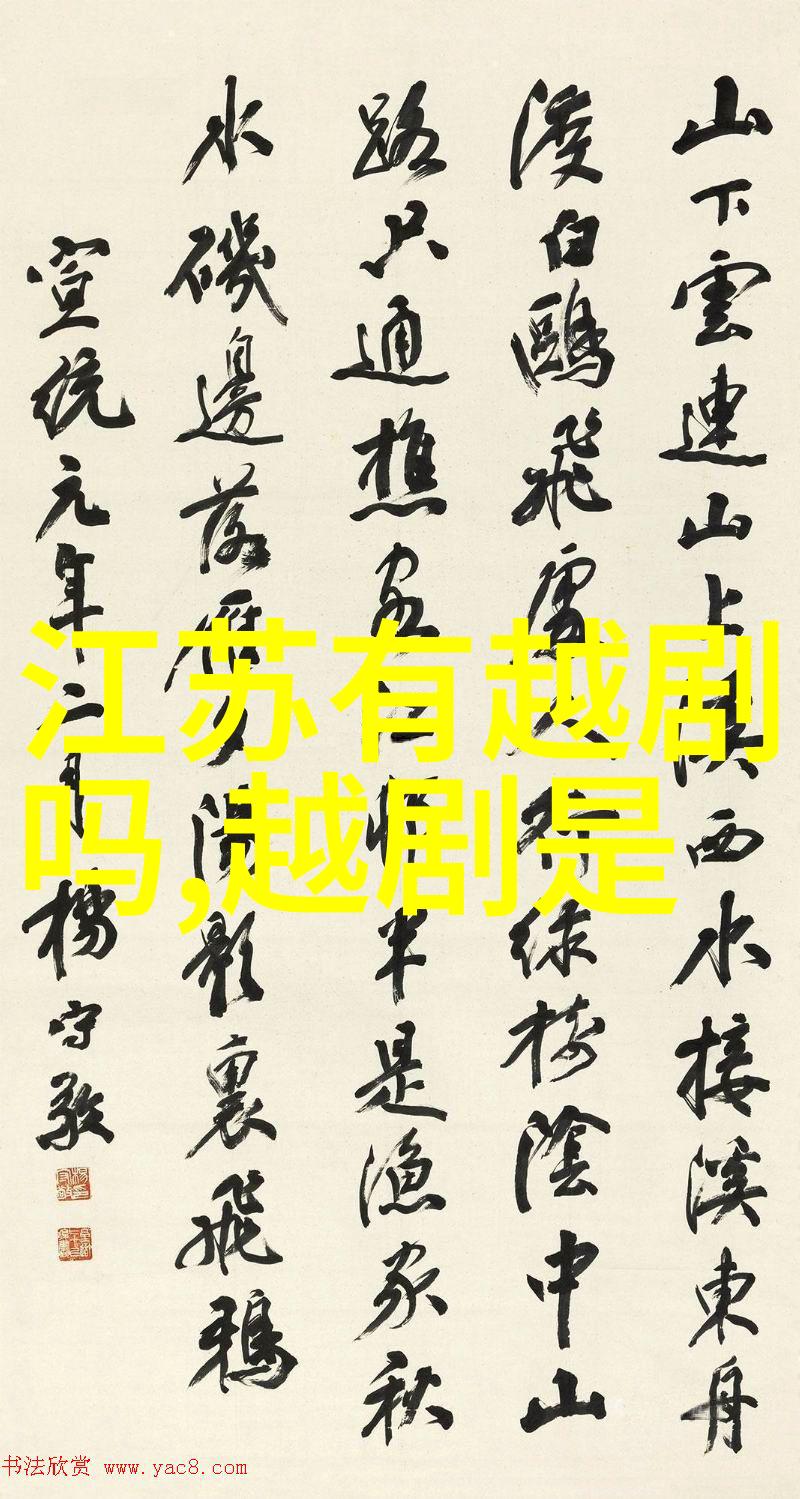 山下雲連山上溪西水接溪東舟
渡白鷗飛處人行綠樹陰中山
路只通樵客江村半是漁家秋
水磯邊落雁夕陽影裏飛鴉
宣統元年二月楊守敬
江苏有越剧
吗,越剧是
书法欣赏 www.yac8.com